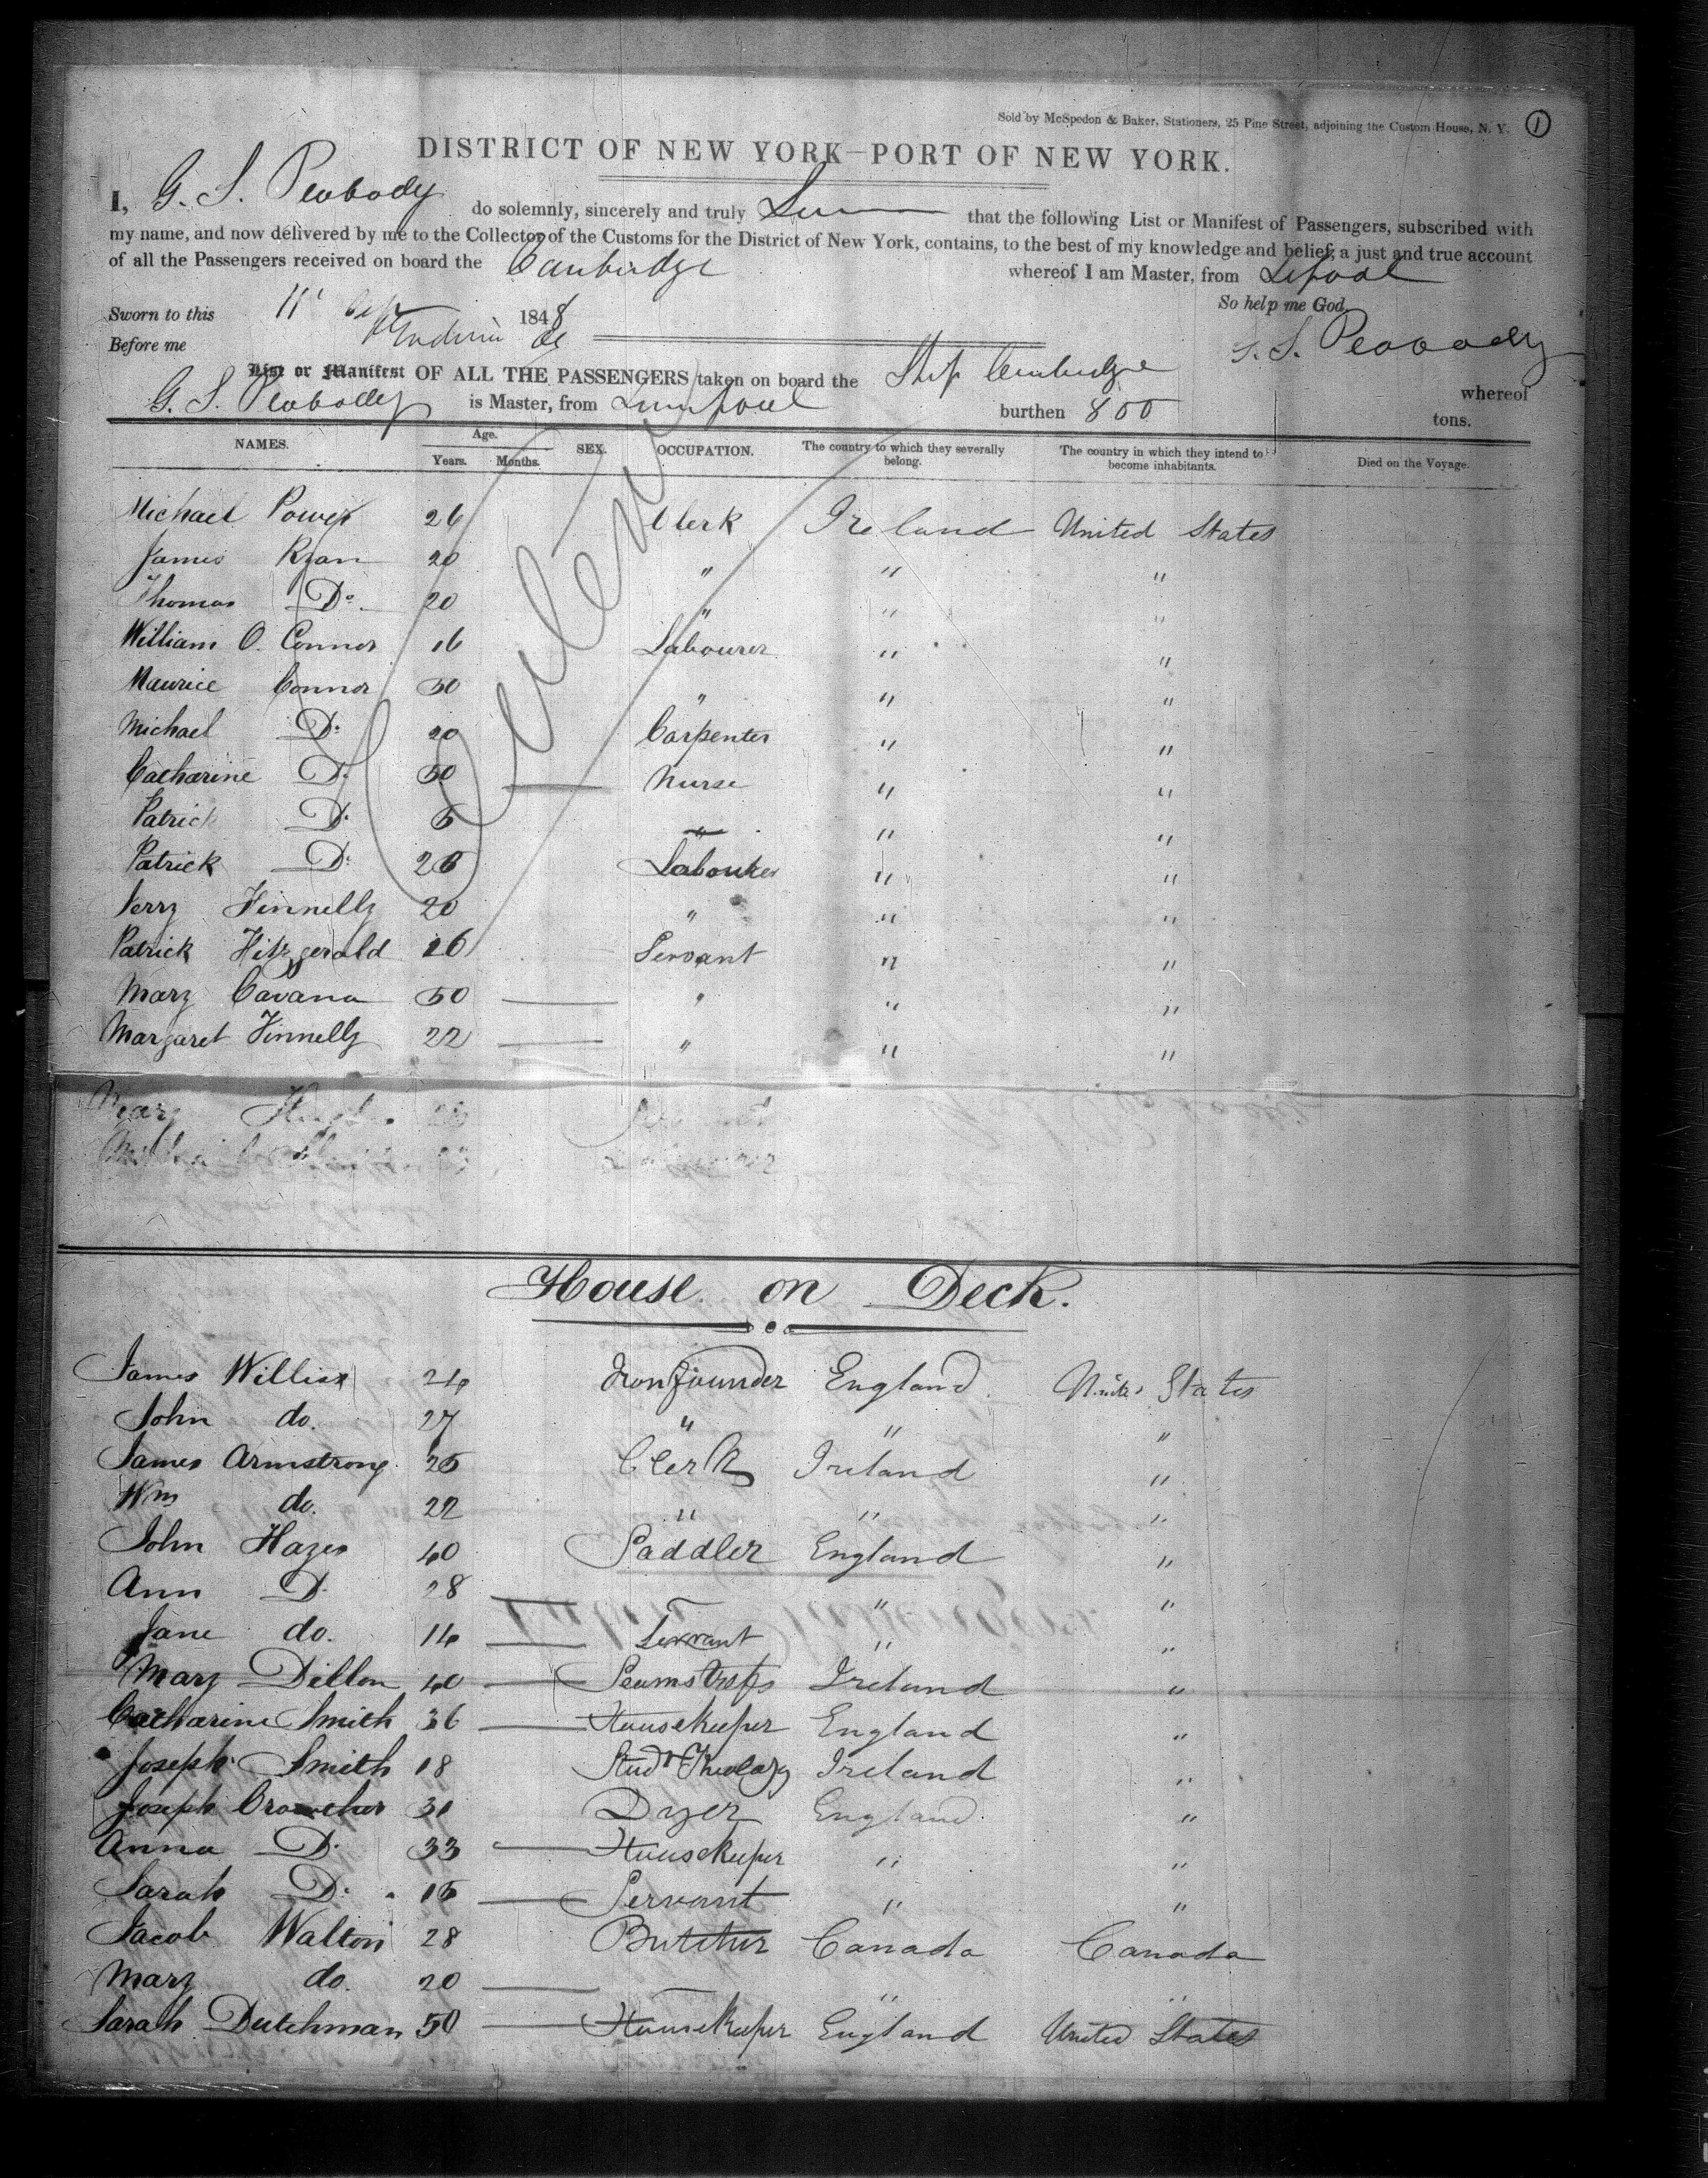 Sold by McSpedon & Baker, Stationers, 25 Pine Street, adjoining the Custom House, N. Y. 1
DISTRICT OF NEW YORK—PORT OF NEW YORK.
I, G. S. Peabody do solemnly, sincerely and truly that the following List or Manifest of Passengers, subscribed with
my name, and now delivered by me to the Collector of the Customs for the District of New York, contains, to the best of my knowledge and belief, a just and true account
of all the Passengers received on board the Cambridge whereof I am Master, from Lpool
So help me God
Sworn to this 11 1848
Before me G. S. Peabody
List or Manifest OF ALL THE PASSENGERS taken on board the Ship Cambridge whereof
G. S. Peabody is Master, from Liverpool burthen 800 tons.
NAMES. Age. Years. Months. SEX. OCCUPATION. The country to which they severally belong. The country in which they intend to become inhabitants. Died on the Voyage.
Michael Power 26 Clerk Ireland United States
James Ryan 20 " " "
Thomas Do. 20 " " "
William O. Connor 16 Labourer " "
Maurice Connor 30 " " "
Michael Do. 20 Carpenter " "
Catharine Do. 50 Nurse " "
Patrick Do. 6 " " "
Patrick Do. 26 Labourer " "
Jerry Finnelly 20 " " "
Patrick Fitzgerald 16 Servant " "
Mary Cavana 50 " " "
Margaret Finnelly 22 " " "
Mary
House on Deck.
James Willis 24 Ironfounder England United States
John do. 27 " " "
James Armstrong 25 Clerk Ireland "
Wm do. 22 " " "
John Hayes 40 Saddler England "
Ann D. 28 " "
Jane do. 14 Servant " "
Mary Dillon 40 Seamstress Ireland "
Catharine Smith 36 Housekeeper England "
Joseph Smith 18 Studt Theology Ireland "
Joseph Crowther 31 Dyer England "
Anna D. 33 Housekeeper " "
Sarah D. 15 Servant " "
Jacob Walton 28 Butcher Canada Canada
Mary do. 20 " "
Sarah Dutchman 50 Housekeeper England United States